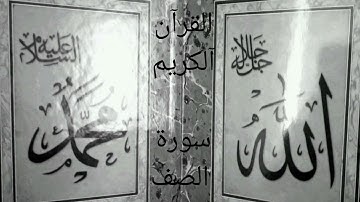 القرآن
الكريم
سورة
الصف
الله
جل جلاله
محمد
عليه السلام